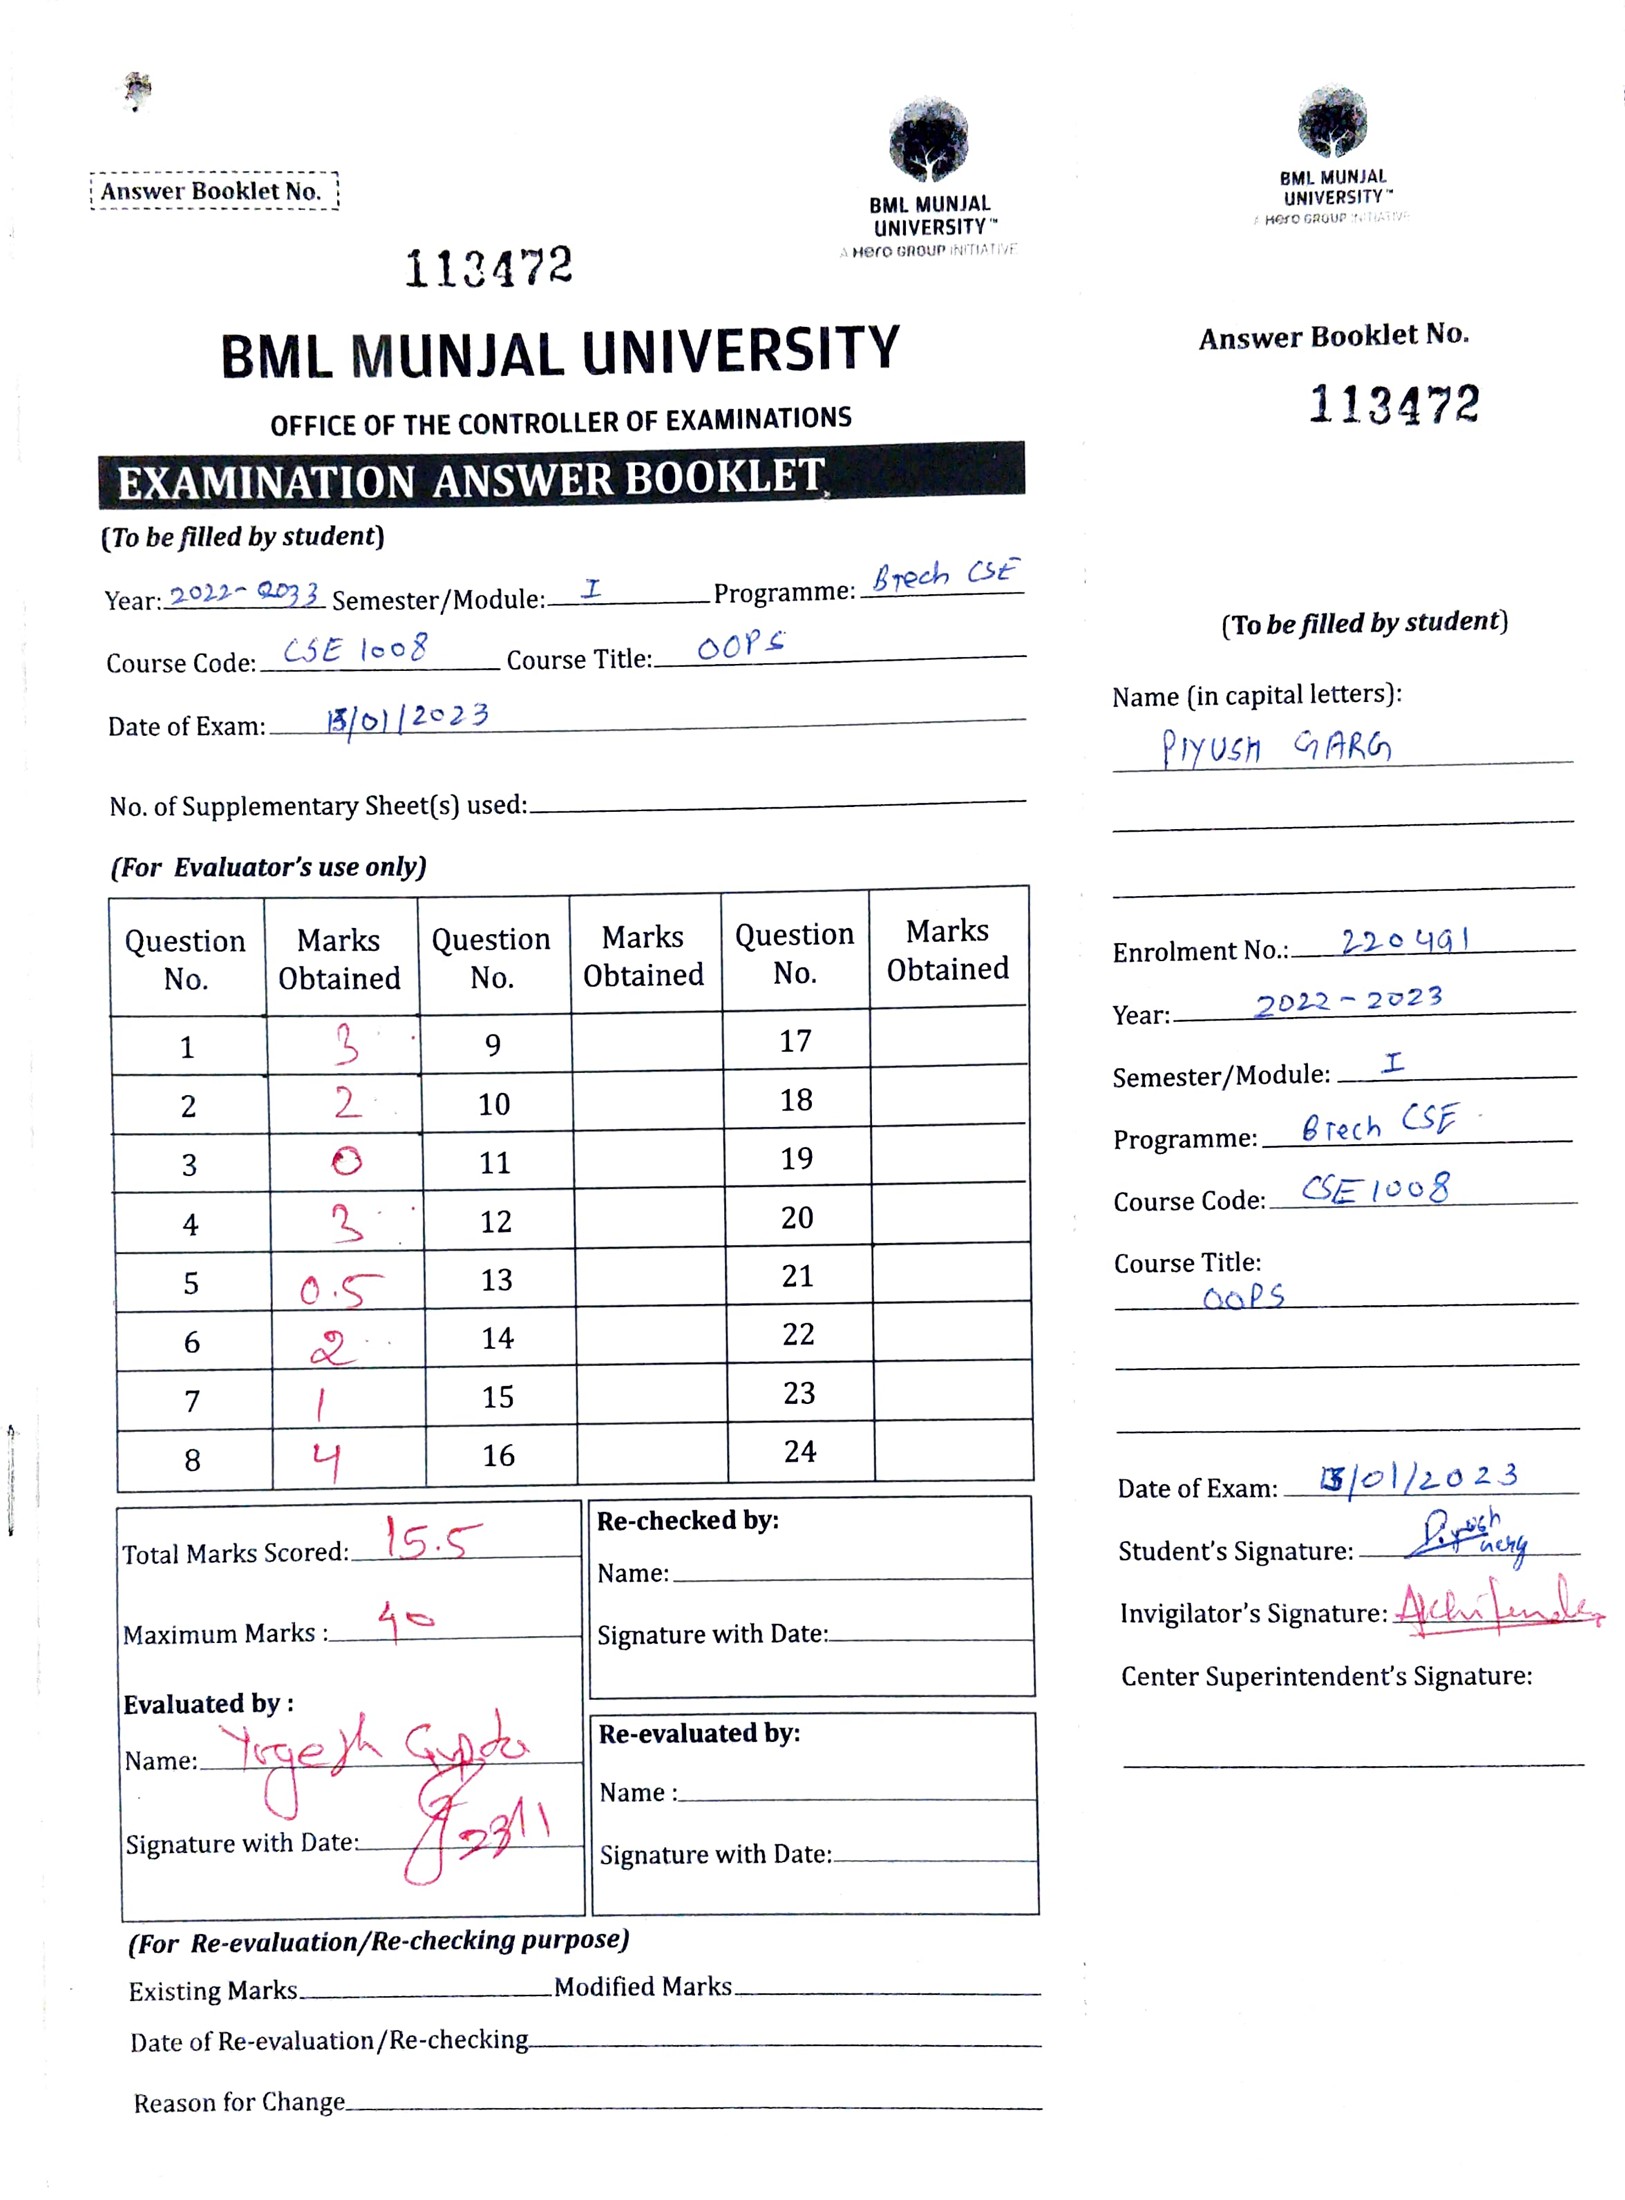 Answer Booklet No.
113472
BML MUNJAL
UNIVERSITY™
A Hero GROUP INITIATIVE
BML MUNJAL UNIVERSITY
OFFICE OF THE CONTROLLER OF EXAMINATIONS
EXAMINATION ANSWER BOOKLET
(To be filled by student)
Year: 2022-2033 Semester/Module: I Programme: Btech CSE
Course Code: CSE 1008 Course Title: OOPS
Date of Exam: 13/01/2023
No. of Supplementary Sheet(s) used:
(For Evaluator's use only)
Question No. Marks Obtained Question No. Marks Obtained Question No. Marks Obtained
1 3 9 17
2 2 10 18
3 0 11 19
4 3 12 20
5 0.5 13 21
6 2 14 22
7 1 15 23
8 4 16 24
Total Marks Scored: 15.5
Maximum Marks : 40
Evaluated by :
Name: Yogesh Gupta
Signature with Date: 23/1
Re-checked by:
Name:
Signature with Date:
Re-evaluated by:
Name :
Signature with Date:
(For Re-evaluation/Re-checking purpose)
Existing Marks Modified Marks
Date of Re-evaluation/Re-checking
Reason for Change
BML MUNJAL
UNIVERSITY™
A Hero GROUP INITIATIVE
Answer Booklet No.
113472
(To be filled by student)
Name (in capital letters):
PIYUSH GARG
Enrolment No.: 220491
Year: 2022-2023
Semester/Module: I
Programme: Btech CSE
Course Code: CSE1008
Course Title:
OOPS
Date of Exam: 13/01/2023
Student's Signature: Piyush Garg
Invigilator's Signature:
Center Superintendent's Signature: